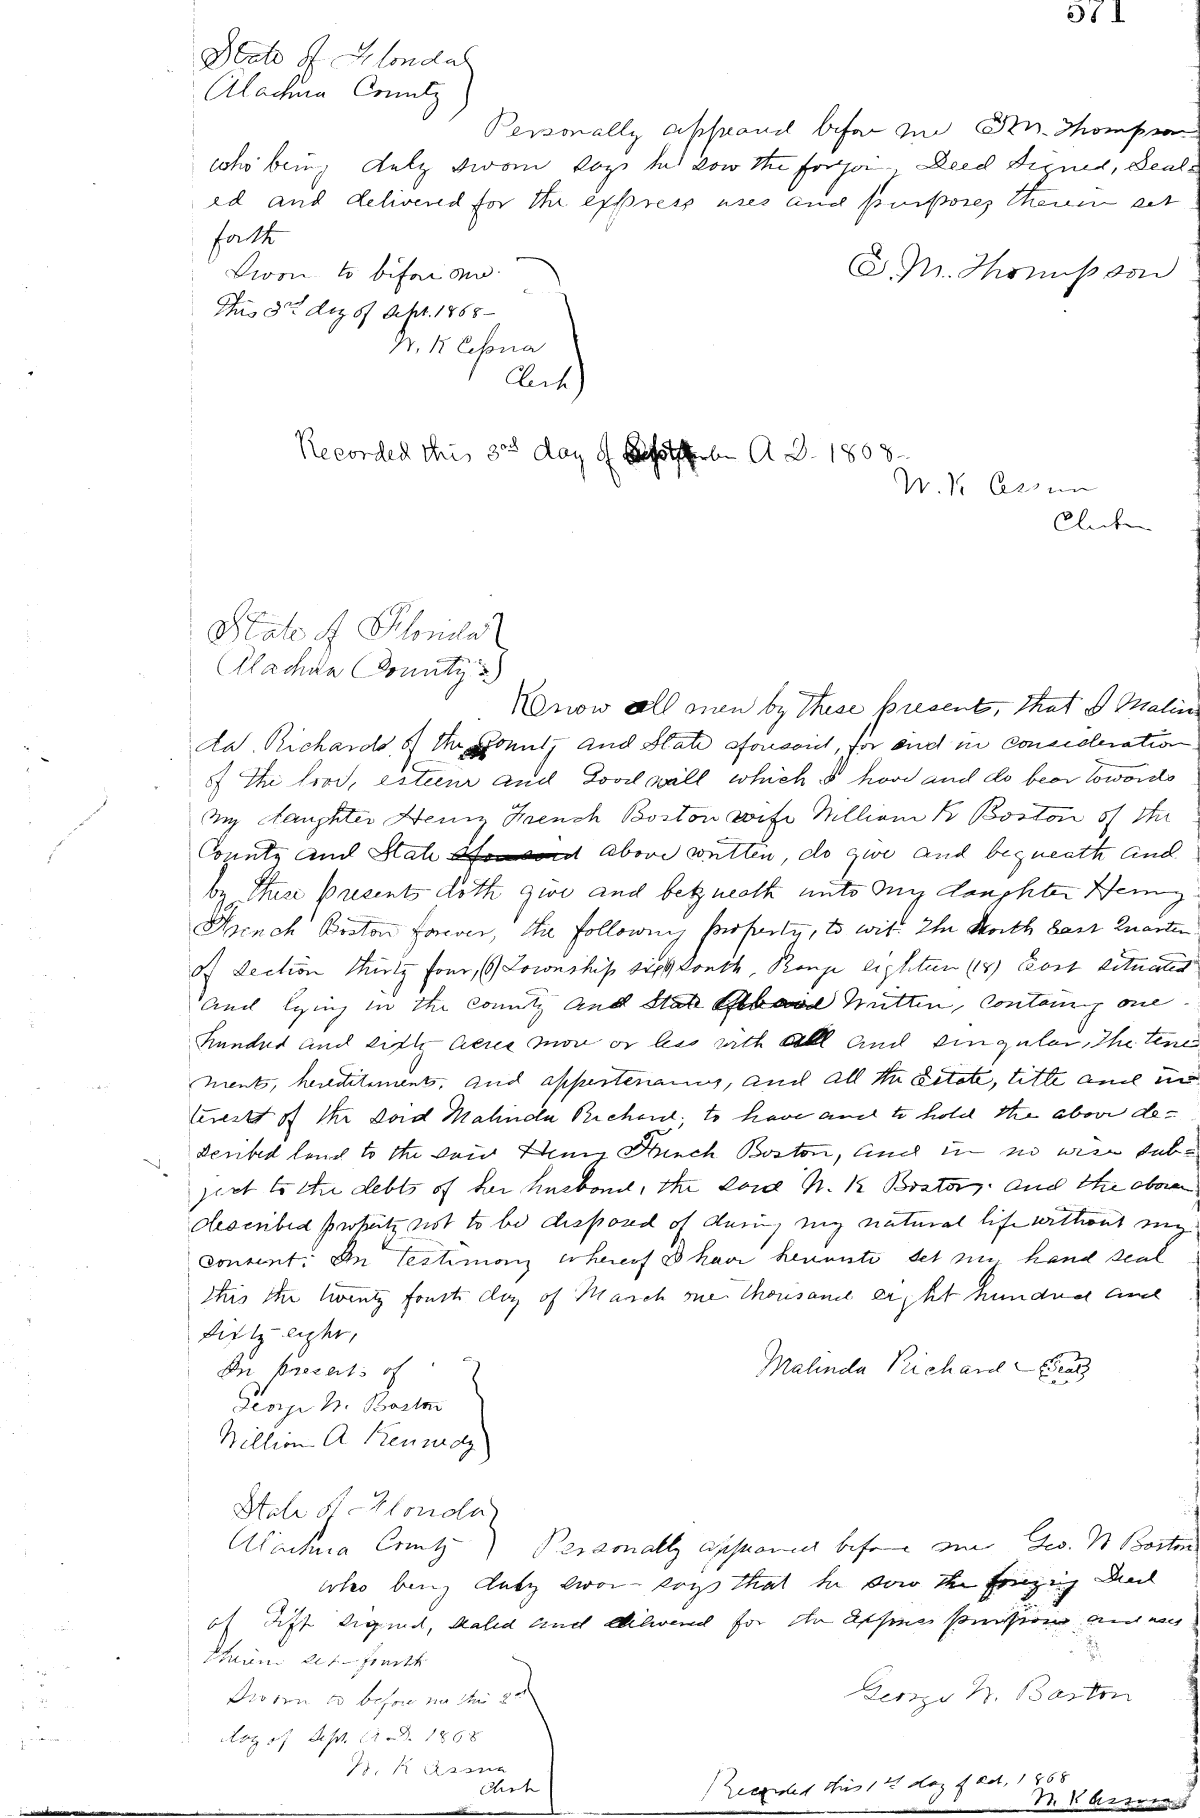 571
State of Florida
Alachua County
Personally appeared before me E M. Thompson
who being duly sworn says he saw the forgoing Deed Signed, Seal-
ed and delivered for the express uses and purposes therein set
forth
E. M. Thompson
Sworn to before me
This 3rd day of Sept. 1868-
W. K Cessna
Clerk
Recorded this 3rd day of September A D. 1868-
W. K Cessna
Clerk
State of Florida
Alachua County
Know all men by these presents, that I Malin
da Richards of the County and State aforesaid, for and in consideration
of the love, esteem and Good will which I have and do bear towards
my daughter Henry French Boston wife William K Boston of the
County and State aforesaid above written, do give and bequeath and
by these presents doth give and bequeath unto my daughter Henry
French Boston forever, the following property, to wit: The North East Quarter
of Section thirty four, (6) Township six South, Range eighteen (18) East situated
and lying in the county and State Written, containg one
hundred and sixty acres more or less with all and singular, the tene
ments, hereditaments, and appertenances, and all the Estate, title and in
terest of the said Malinda Richard, to have and to hold the above de=
scribed land to the said Henry French Boston, and in no wise sub=
ject to the debts of her husband, the said W. K Boston, and the above
described property not to be disposed of during my natural life without my
consent. In Testimony whereof I have hereunto set my hand seal
this the twenty fourth day of March one thousand eight hundred and
sixty eight,
In presents of
Malinda Richard Seal
George W. Boston
William A Kennedy
State of Florida
Alachua County Personally appeared before me Geo. W Boston
who being duly sworn says that he saw the foregoing Deed
of Gift signed, sealed and delivered for the express purposes and uses
therein set fourth
Sworn to before me this 2nd
George W. Boston
day of Sept. A.D. 1868
W. K Cessna
Clerk
Recorded this 1st day of Oct. 1868
W. K Cessna